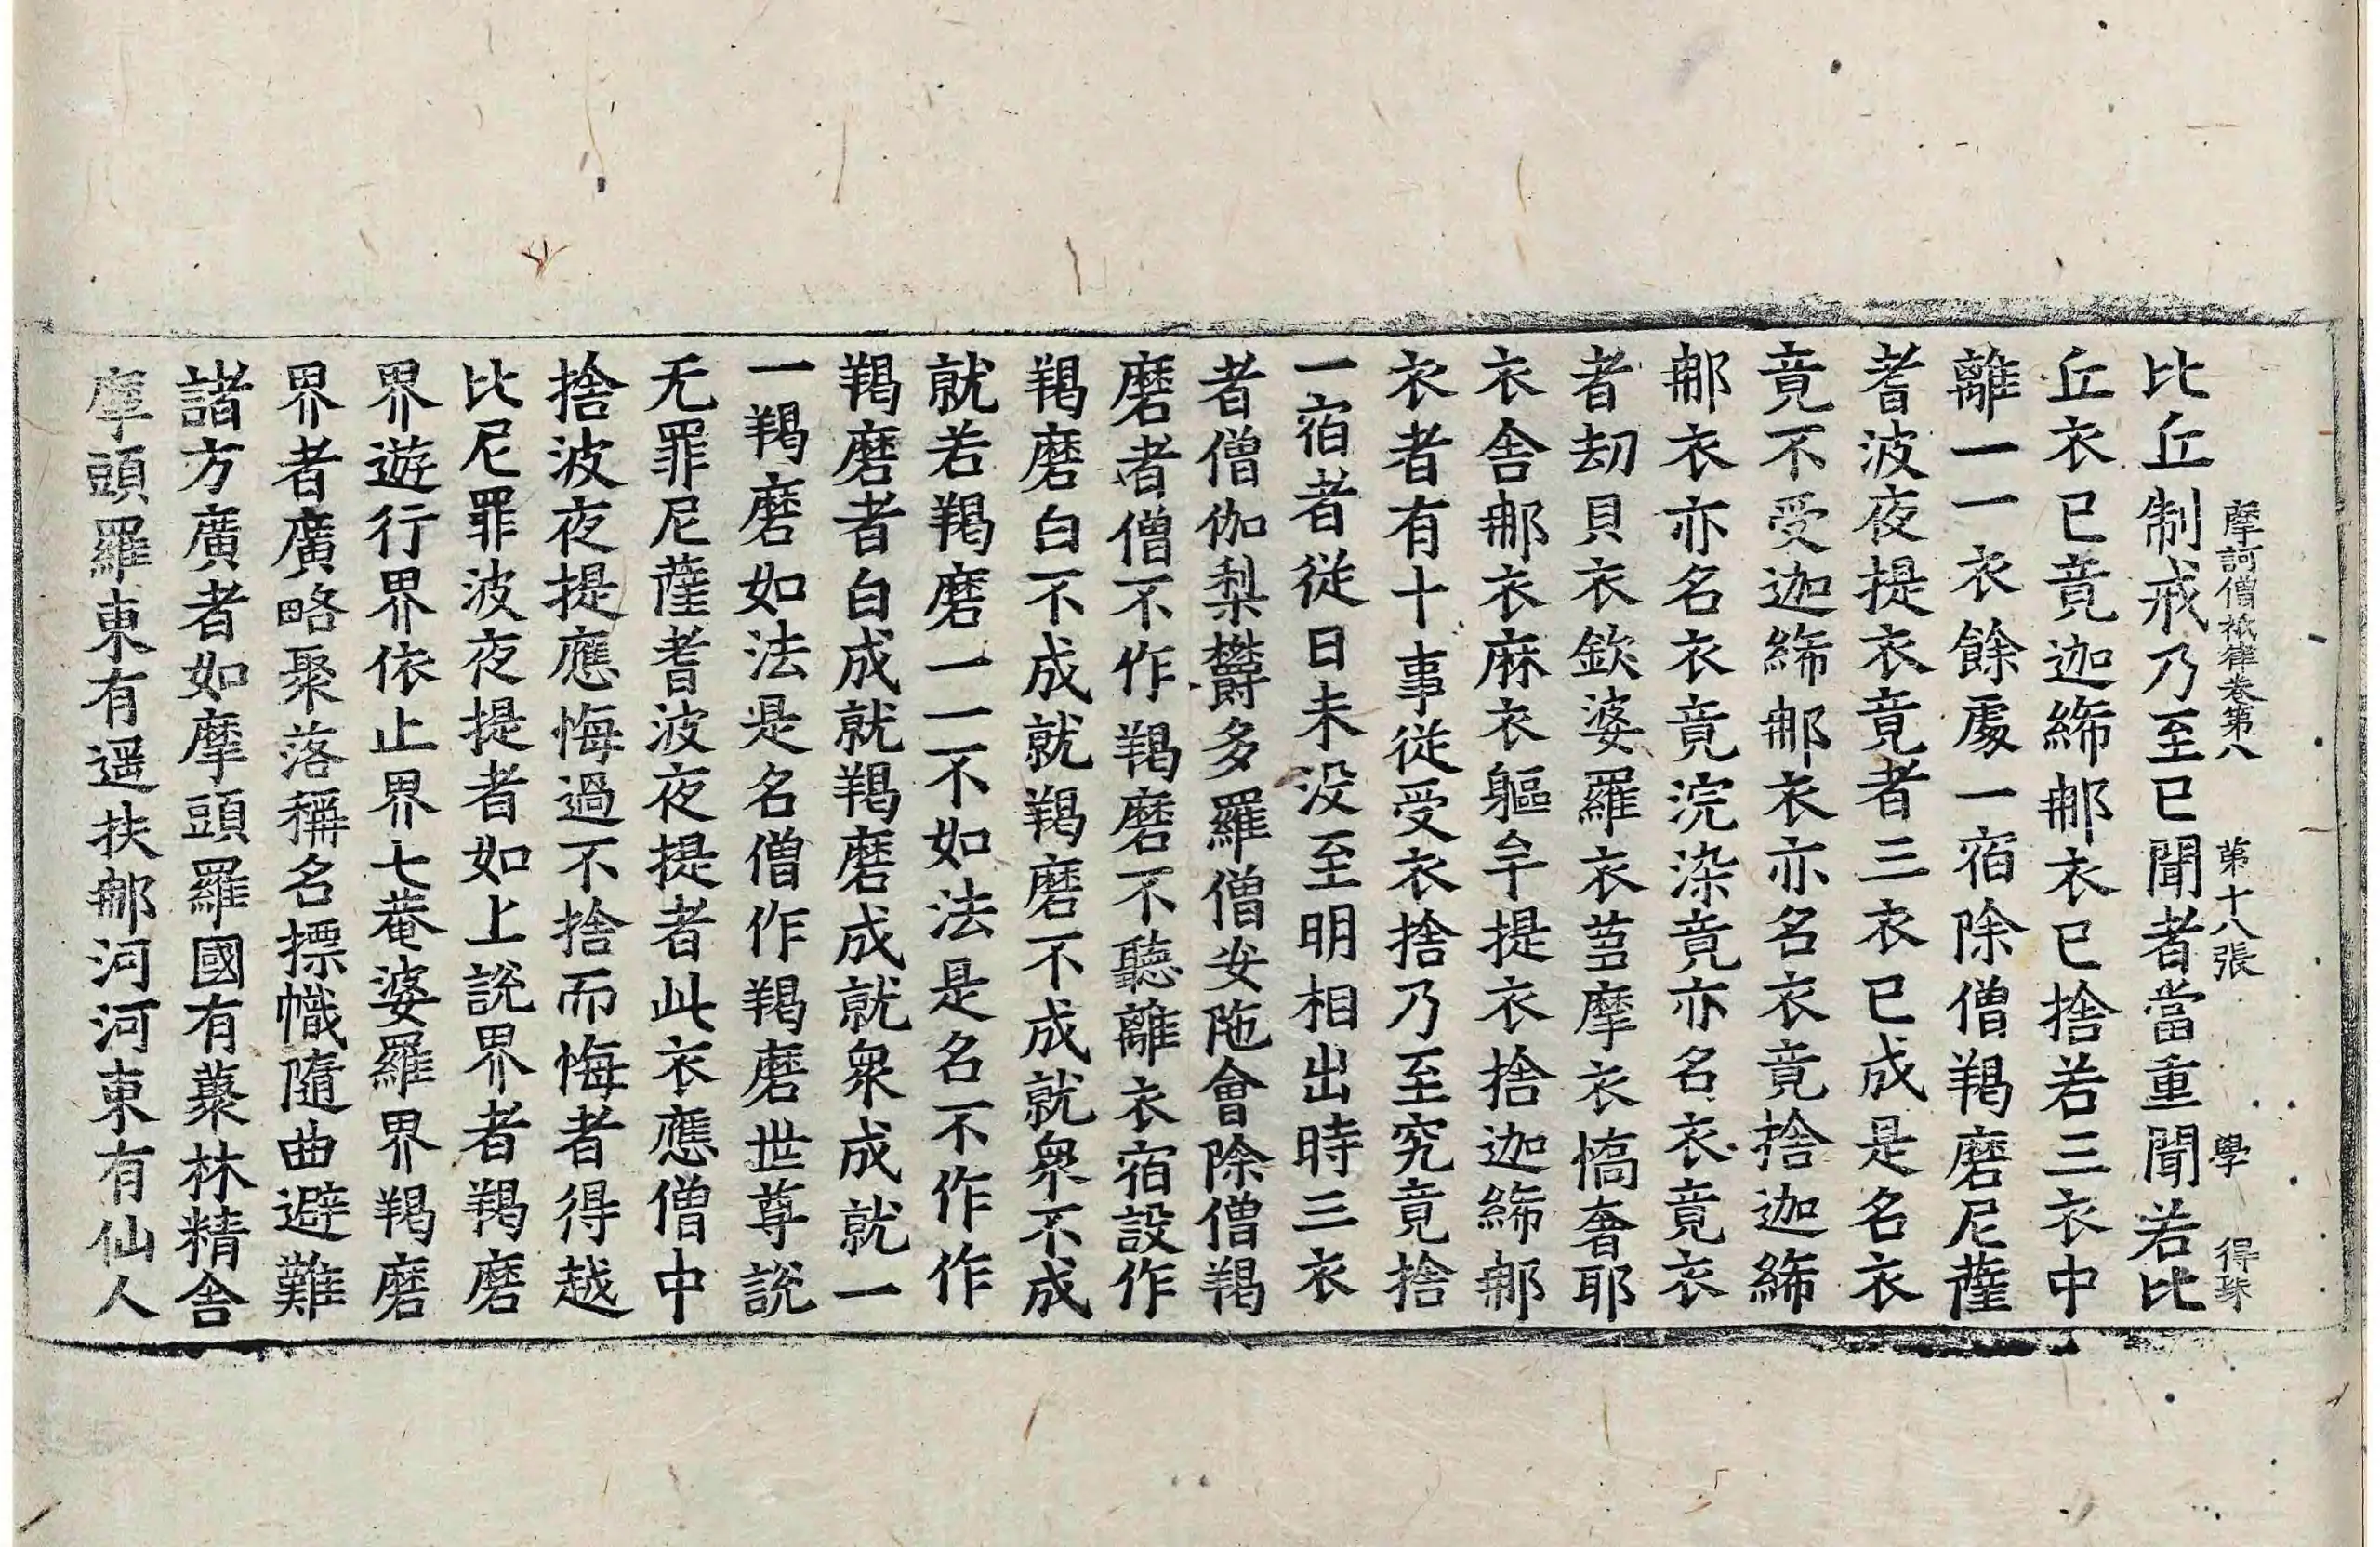 摩訶僧祇律卷第八 第十八張 學 得琜
比丘制戒乃至已聞者當重聞若比
丘衣已竟迦絺那衣已捨若三衣中
離一一衣餘處一宿除僧羯磨尼薩
耆波夜提衣竟者三衣已成是名衣
竟不受迦絺那衣亦名衣竟捨迦絺
那衣亦名衣竟浣染竟亦名衣竟衣
者劫貝衣欽婆羅衣芻摩衣憍奢耶
衣舍那衣麻衣軀牟提衣捨迦絺那
衣者有十事從受衣捨乃至究竟捨
一宿者從日未没至明相出時三衣
者僧伽梨欝多羅僧安陁會除僧羯
磨者僧不作羯磨不聽離衣宿設作
羯磨白不成就羯磨不成就衆不成
就若羯磨一一不如法是名不作作
羯磨者白成就羯磨成就衆成就一
一羯磨如法是名僧作羯磨世尊說
无罪尼薩耆波夜提者此衣應僧中
捨波夜提應悔過不捨而悔者得越
比尼罪波夜提者如上說界者羯磨
界遊行界依止界七菴婆羅界羯磨
界者廣略聚落稱名摽幟隨曲避難
諸方廣者如摩頭羅國有藂林精舍
摩頭羅東有遥扶那河河東有仙人